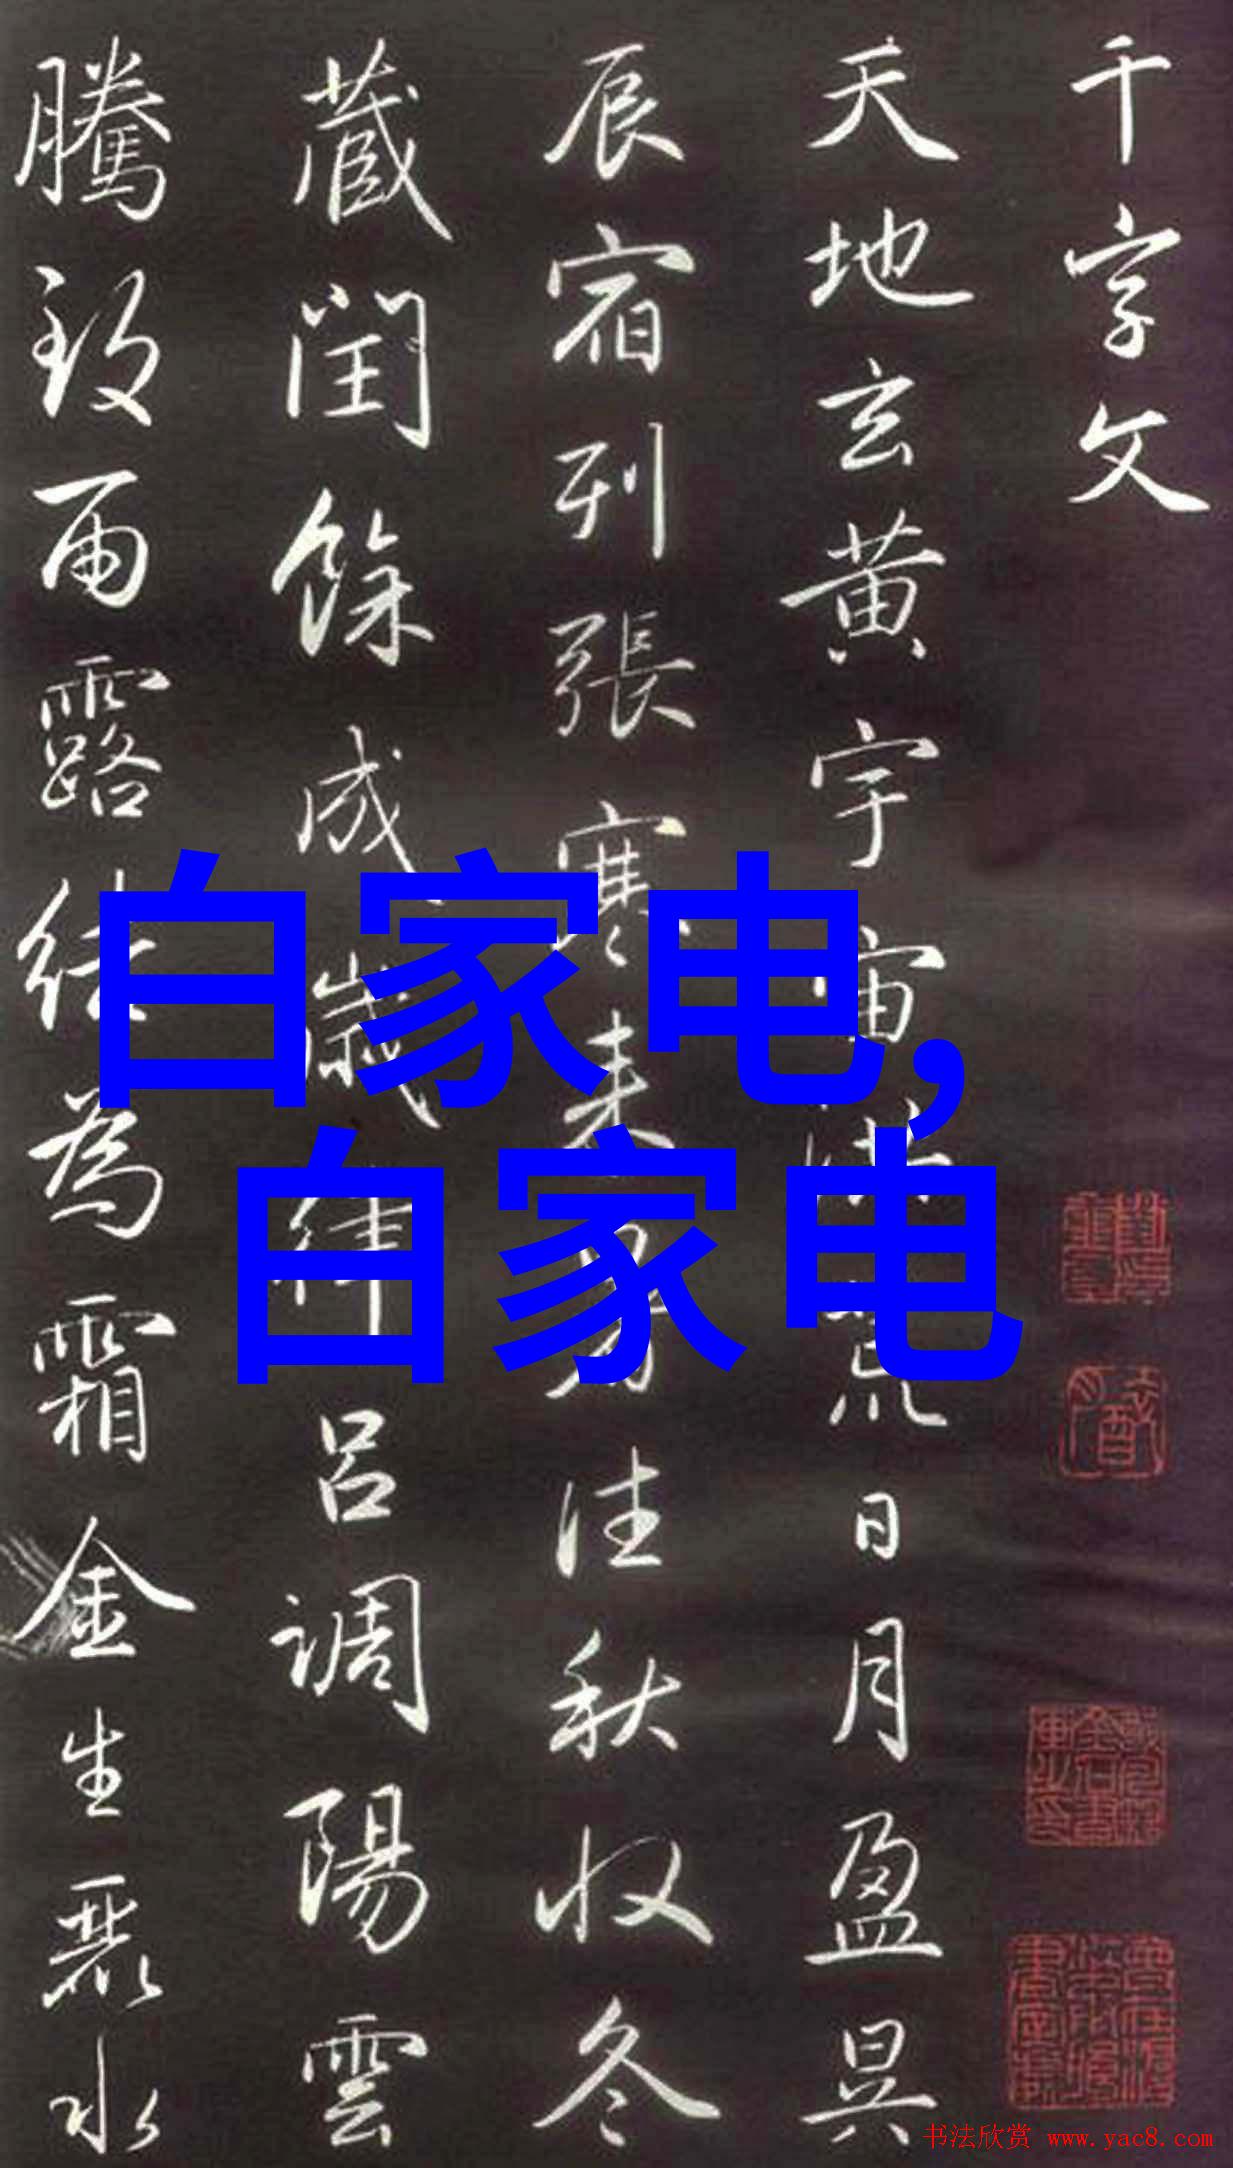 千字文
天地玄黄宇宙洪荒日月盈昃
辰宿列張寒来暑往秋收冬
蔵閏餘成歲律吕調陽雲
騰致雨露結為霜金生麗水
白家电,
白家电
书法欣赏 www.yac8.com